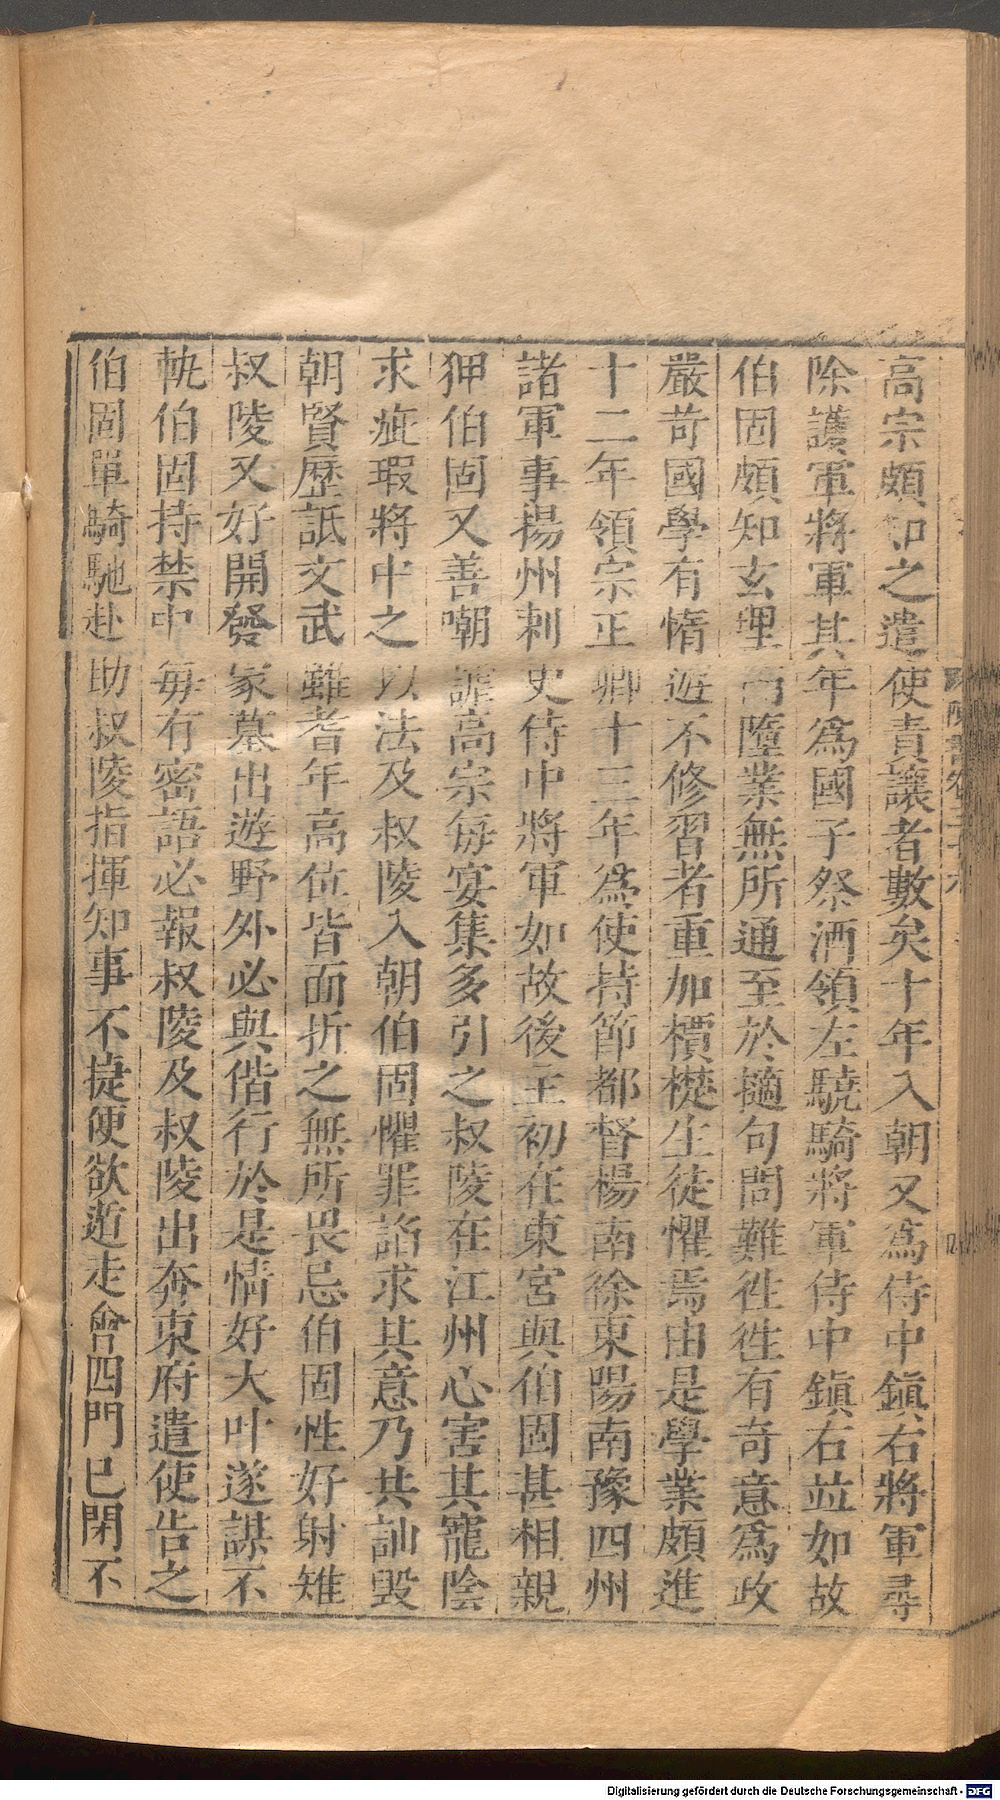 高宗頗知之遣使責讓者數矣十年入朝又爲侍中鎭右將軍尋
除護軍將軍其年爲國子祭酒領左驍騎將軍侍中鎭右竝如故
伯固頗知玄理而墮業無所通至於擿句問難徃徃有奇意爲政
嚴苛國學有惰遊不修習者重加檟楚生徒懼焉由是學業頗進
十二年領宗正卿十三年爲使持節都督楊南徐東陽南豫四州
諸軍事揚州刺史侍中將軍如故後主初在東宮與伯固甚相親
狎伯固又善嘲謔高宗每宴集多引之叔陵在江州心害其寵陰
求疵瑕將中之以法及叔陵入朝伯固懼罪諂求其意乃共訕毀
朝賢歷詆文武雖耆年高位皆面折之無所畏忌伯固性好射雉
叔陵又好開發冢墓出遊野外必與偕行於是情好大叶遂謀不
軌伯固持禁中每有密語必報叔陵及叔陵出奔東府遣使告之
伯固單騎馳赴助叔陵指揮知事不捷便欲遁走會四門已閉不
Digitalisierung gefördert durch die Deutsche Forschungsgemeinschaft - DFG